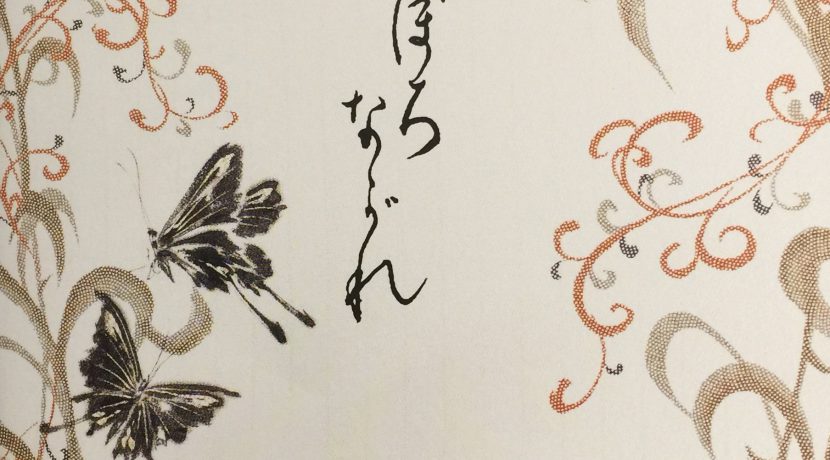 ぼろ
ながれ